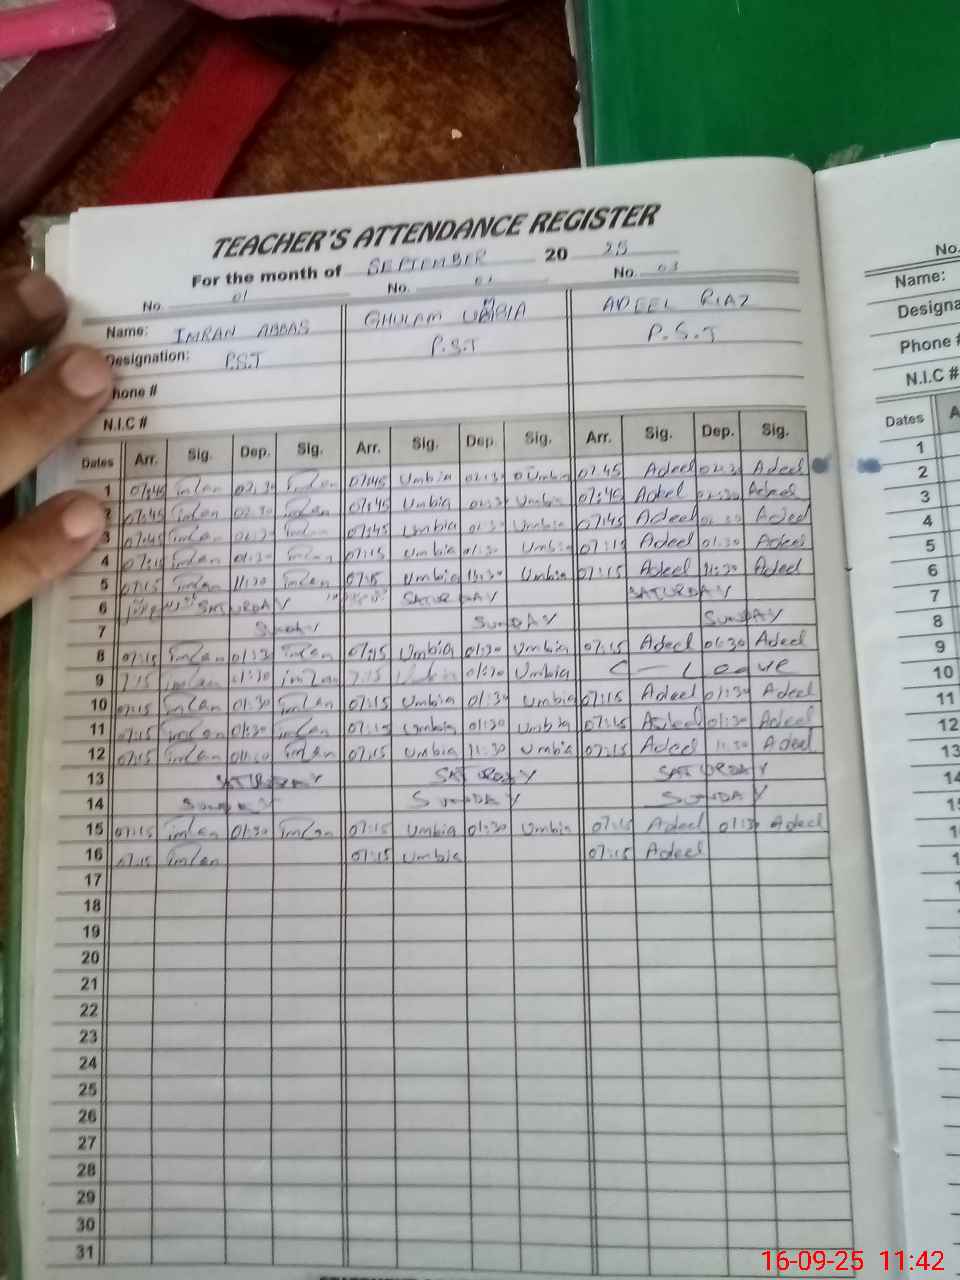 TEACHER'S ATTENDANCE REGISTER
For the month of SEPTEMBER 20 25
No. 01 No. No. 03
Name: IMRAN ABBAS GHULAM ADEEL RIAZ
Designation: P.S.T P.S.T P.S.T
hone #
N.I.C #
Dates Arr. Sig. Dep. Sig. Arr. Sig. Dep. Sig. Arr. Sig. Dep. Sig.
1 07:45 Imran 07:45 Umbia Umbia 07:45 Adeel Adeel
2 07:45 Imran Imran 07:45 Umbia Umbia 07:45 Adeel Adeel
3 07:45 Imran Imran 07:45 Umbia Umbia 07:45 Adeel Adeel
4 07:15 Imran 01:30 Imran 07:15 Umbia 01:30 Umbia 07:15 Adeel 01:30 Adeel
5 07:15 Imran 11:30 Imran 07:15 Umbia 11:30 Umbia 07:15 Adeel 11:30 Adeel
6 SATURDAY SATURDAY SATURDAY
7 Sunday SUNDAY SUNDAY
8 07:15 Imran 01:30 Imran 07:15 Umbia 01:30 Umbia 07:15 Adeel 01:30 Adeel
9 7:15 Imran 01:30 Imran 7:15 01:30 Umbia C — Leave
10 07:15 Imran 01:30 Imran 07:15 Umbia 01:30 Umbia 07:15 Adeel 01:30 Adeel
11 07:15 Imran 01:30 Imran 07:15 Umbia 01:30 Umbia 07:15 Adeel 01:30 Adeel
12 07:15 Imran Imran 07:15 Umbia 11:30 Umbia 07:15 Adeel 11:30 Adeel
13 SATURDAY SATURDAY SATURDAY
14 SUNDAY SUNDAY SUNDAY
15 07:15 Imran 01:30 Imran 07:15 Umbia 01:30 Umbia 07:15 Adeel 01:30 Adeel
16 07:15 Imran 07:15 Umbia 07:15 Adeel
17
18
19
20
21
22
23
24
25
26
27
28
29
30
31
No.
Name:
Designa
Phone #
N.I.C #
Dates A
1
2
3
4
5
6
7
8
9
10
11
12
13
16-09-25 11:42